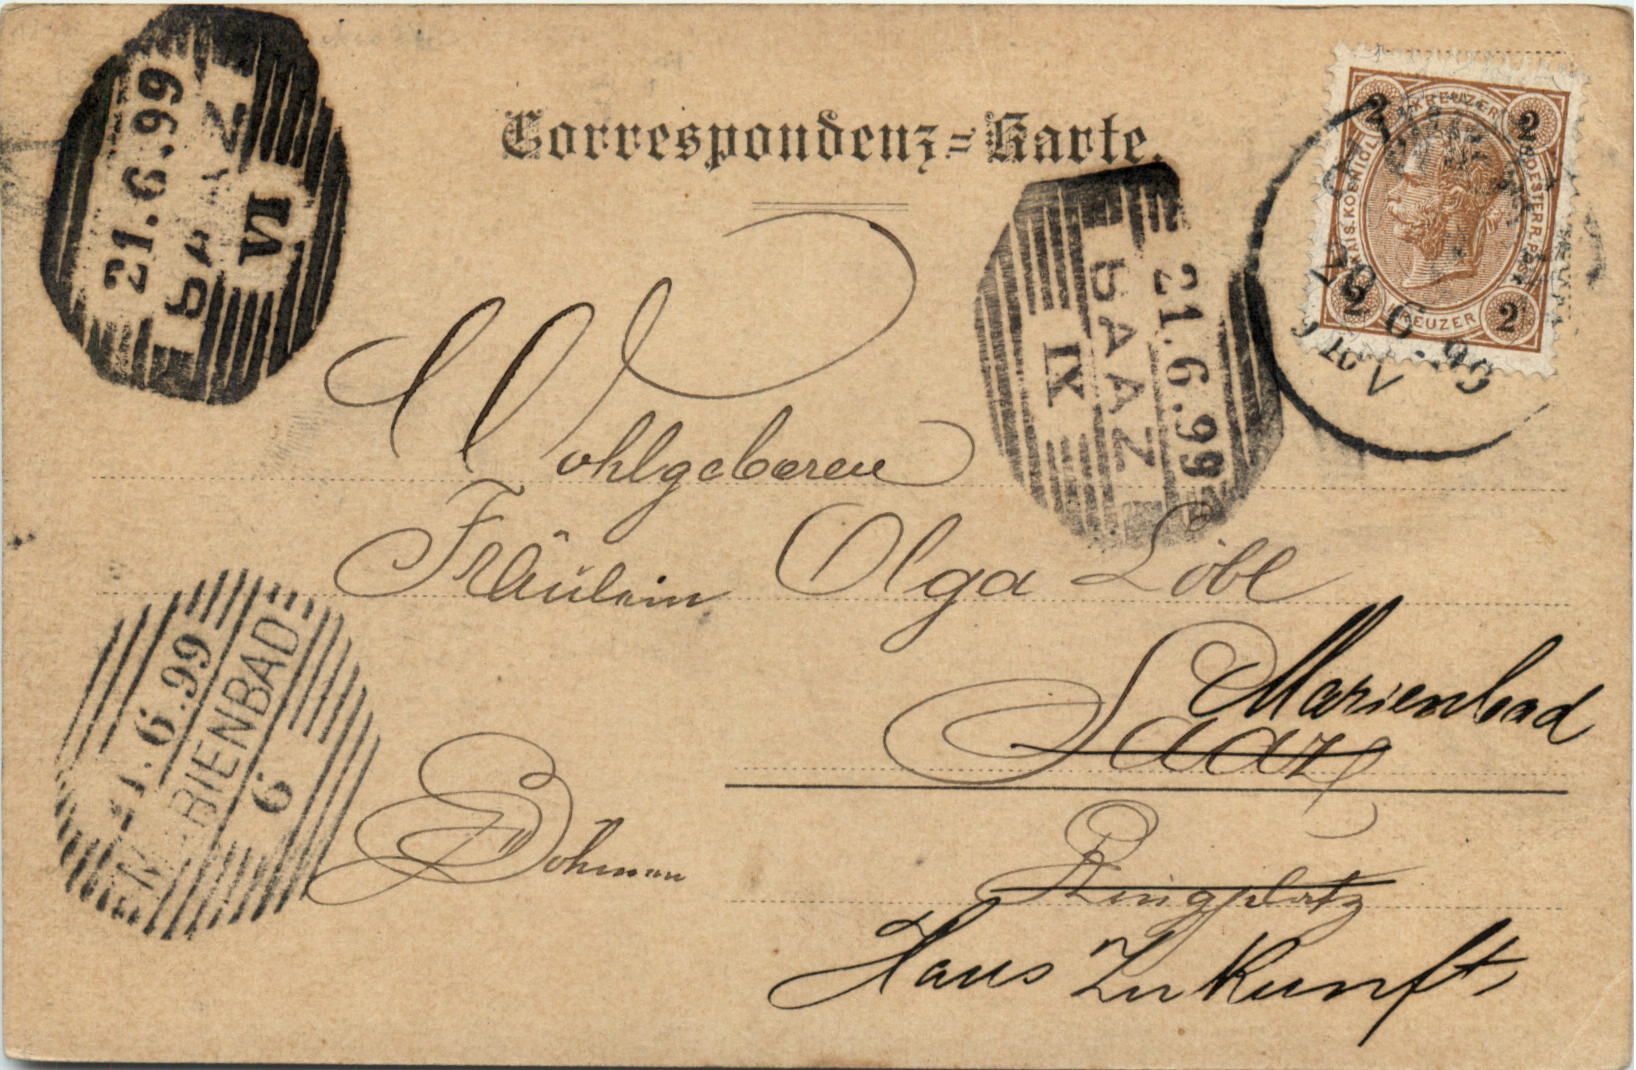 Correspondenz=Karte.
21.6.99
SAAZ
VI
21.6.99
SAAZ
IX
2 KREUZER 2
KAIS. KOENIGL. OESTERR. POST
2 KREUZER 2
20 6. 99
Wohlgeboren
Fräulein Olga Löbl
Marienbad
Saaz
21.6.99
MARIENBAD
6
Böhmen
Ringplatz
Haus Zukunft